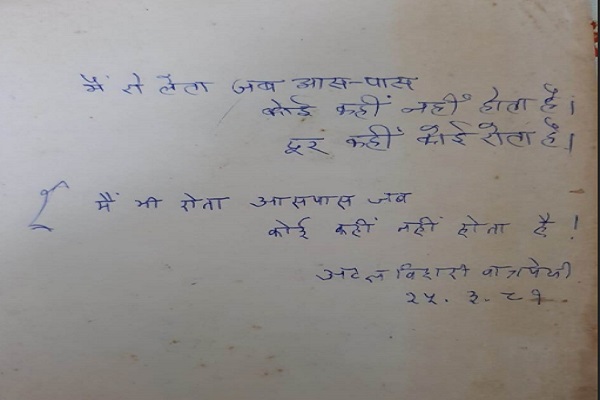 मैं रो लेता जब आस-पास
कोई कहीं नहीं होता है।
दूर कहीं कोई रोता है।
मैं भी रोता आसपास जब
कोई कहीं नहीं होता है!
अटल बिहारी वाजपेयी
२५. ३. ८१